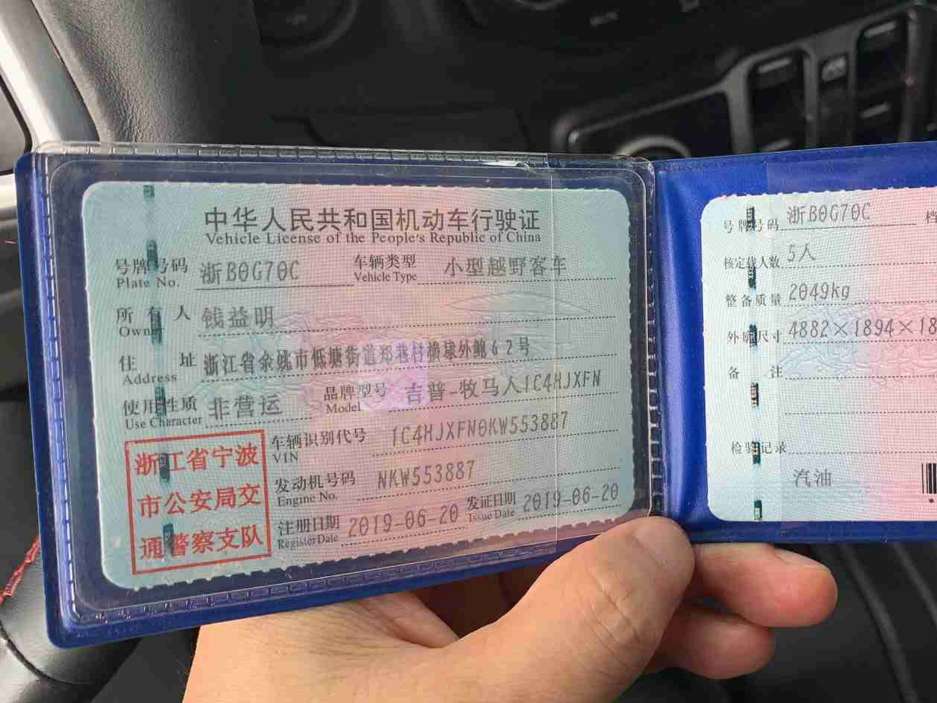 中华人民共和国机动车行驶证
Vehicle License of the People's Republic of China
号牌号码 浙B0G70C 车辆类型 小型越野客车
Plate No. Vehicle Type
所有人 钱益明
Owner
住址 浙江省余姚市低塘街道郑巷村横球外鲍62号
Address
使用性质 非营运 品牌型号 吉普-牧马人1C4HJXFN
Use Character Model
浙江省宁波
市公安局交
通警察支队
车辆识别代号 1C4HJXFN0KW553887
VIN
发动机号码 NKW553887
Engine No.
注册日期 2019-06-20 发证日期 2019-06-20
Register Date Issue Date
号牌号码 浙B0G70C 档
核定载人数 5人
整备质量 2049kg
外廓尺寸 4882×1894×18
备注
检验记录
汽油